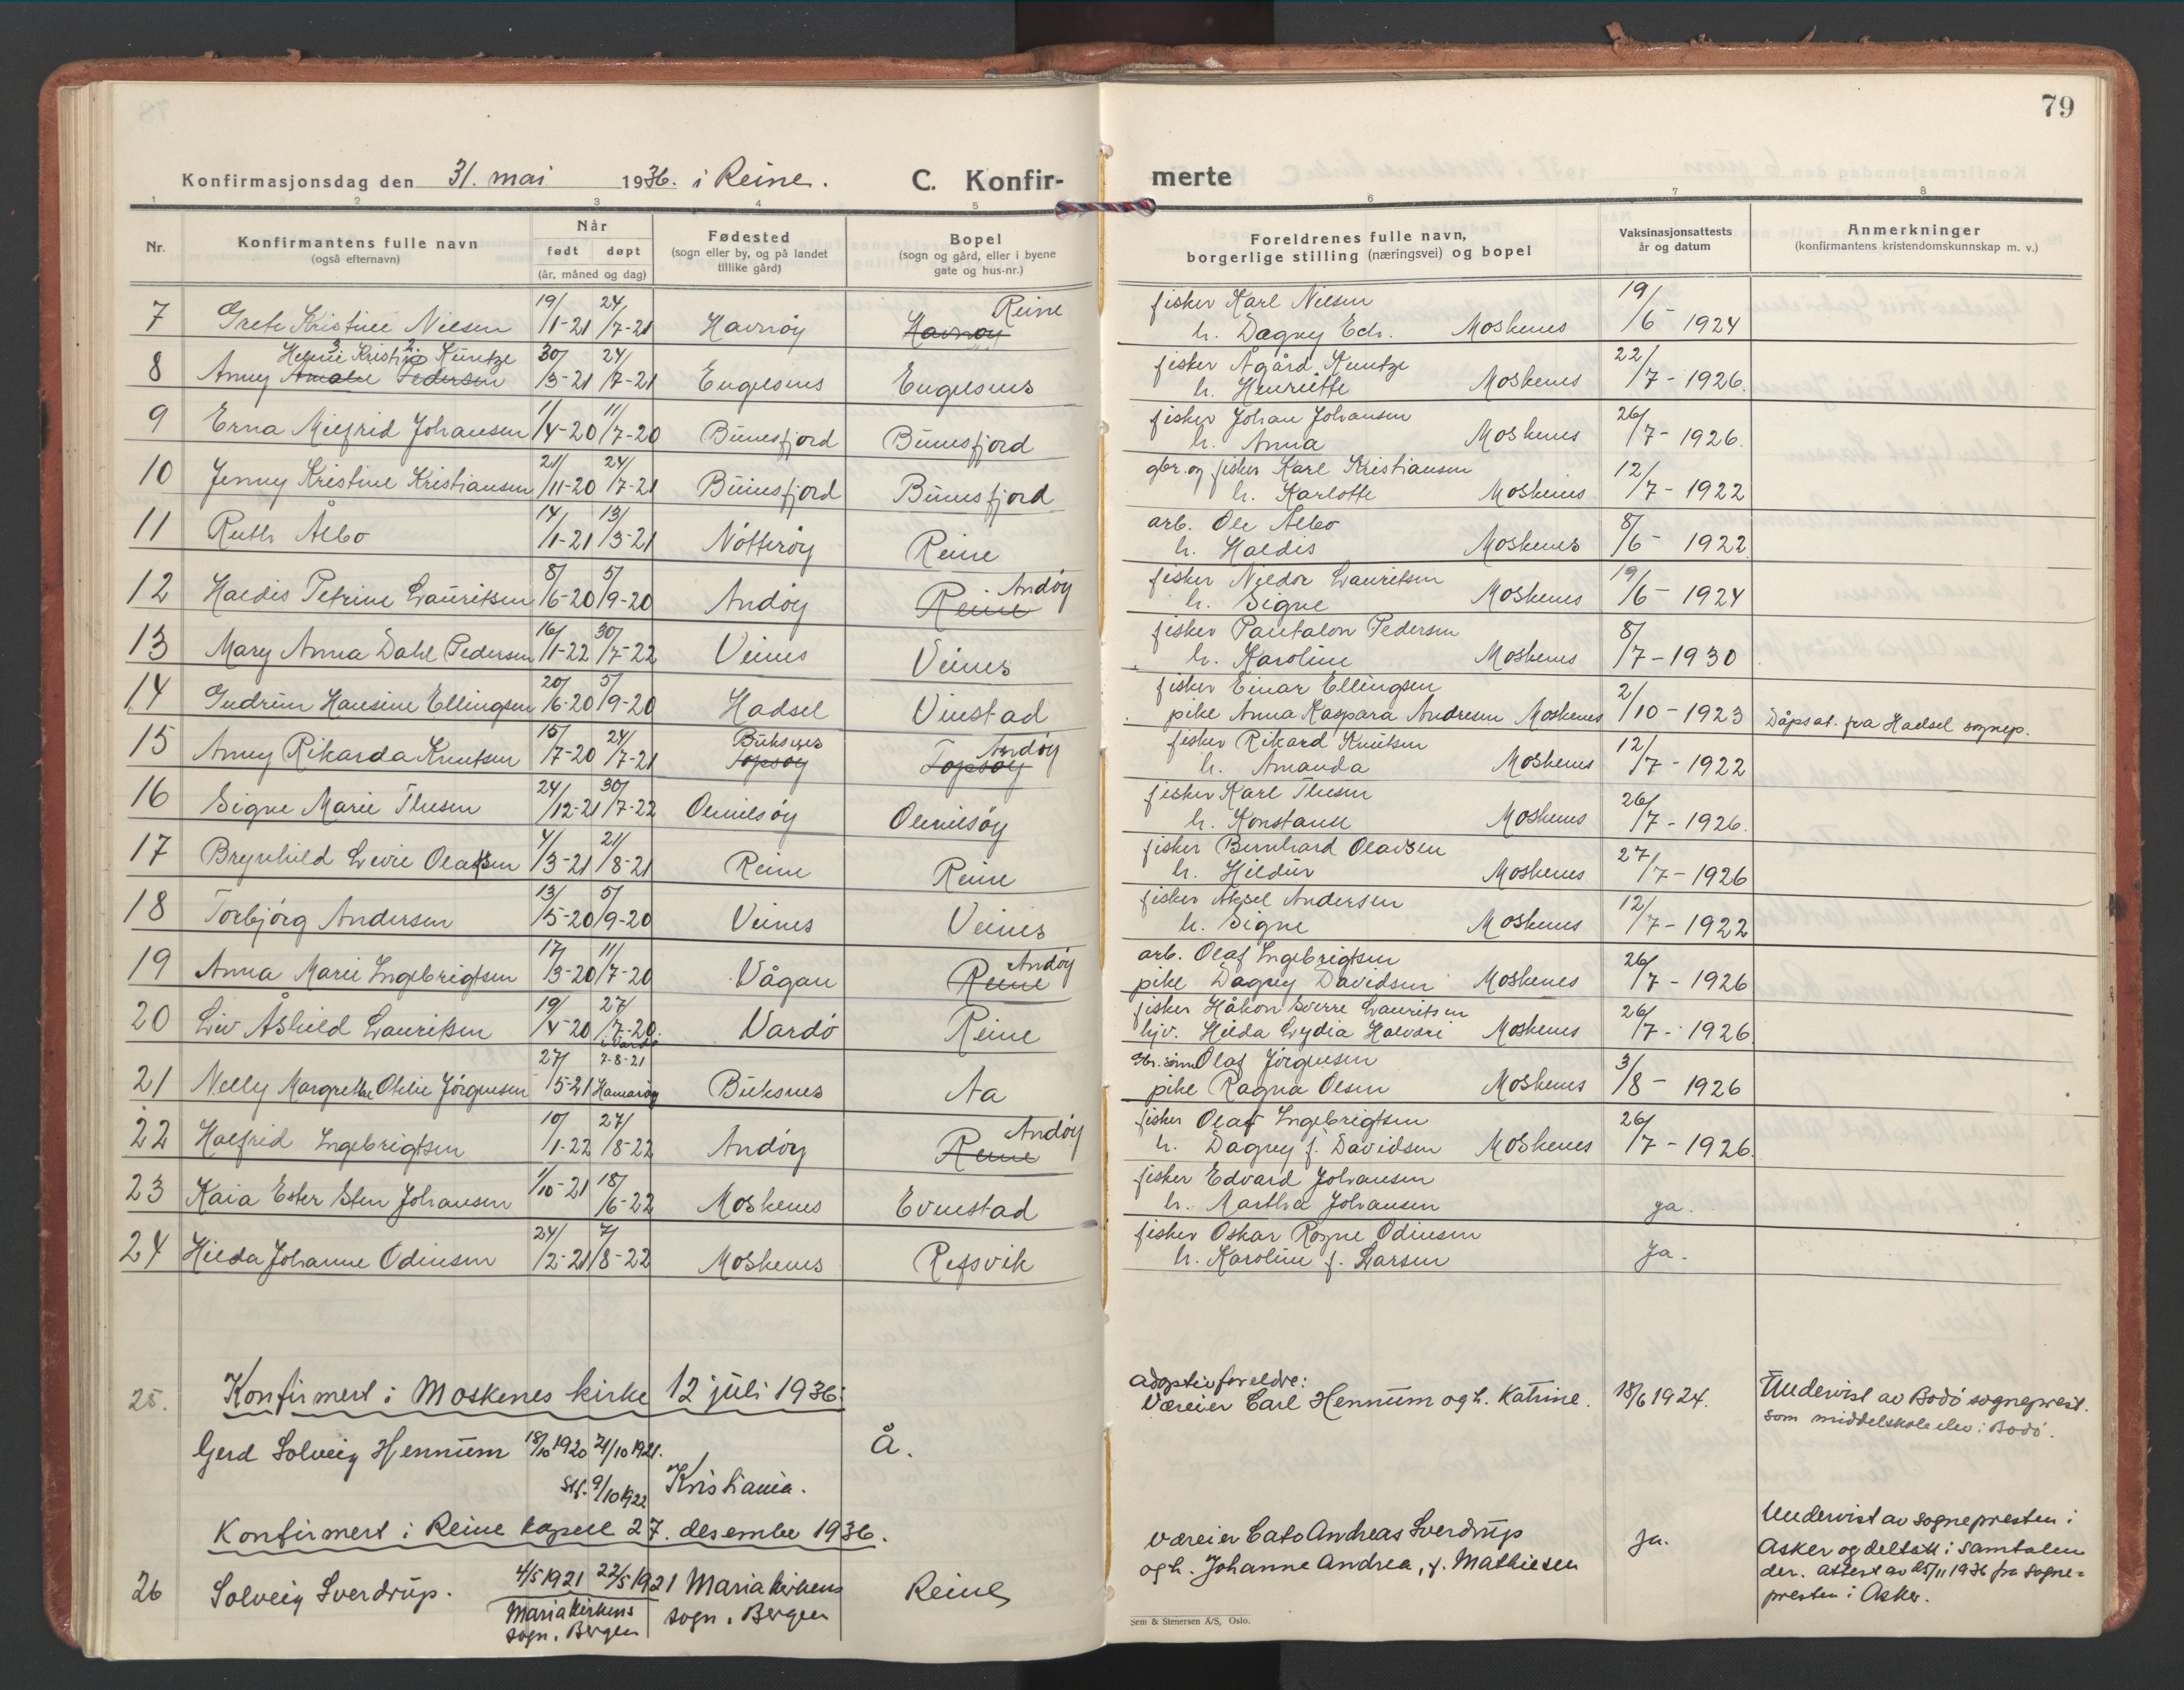 79
Konfirmasjonsdag den 31. mai 1936. i Reine. C. Konfir- merte
1 2 3 4 5 6 7 8
Nr. Konfirmantens fulle navn (også efternavn)
Når født døpt (år, måned og dag)
Fødested (sogn eller by, og på landet tillike gård)
Bopel (sogn og gård, eller i byene gate og hus-nr.)
Foreldrenes fulle navn, borgerlige stilling (næringsvei) og bopel
Vaksinasjonsattests år og datum
Anmerkninger (konfirmantens kristendomskunnskap m. v.)
7 Grete Kristine Nilsen 19/1-21 24/7-21 Havnøy Havnøy Reine fisker Karl Nilsen
h. Dagny Edv. Moskenes 19/6 1924
8 Anny Amalie Pedersen Helene Kristine Kuntze 30/3-21 24/7-21 Engelsnes Engelsnes fisker Ågård Kuntze
h. Henriette Moskenes 22/7-1926.
9 Erna Milfrid Johansen 1/4-20 11/7-20 Bunesfjord Bunesfjord fisker Johan Johansen
h. Anna Moskenes 26/7-1926.
10 Jenny Kristine Kristiansen 21/11-20 24/7-21 Bunesfjord Bunesfjord gbr. og fisker Karl Kristiansen
h. Karlotte Moskenes 12/7-1922
11 Ruth Ålbo 14/1-21 13/3-21 Nøtterøy Reine arb. Ole Ålbo
h. Haldis Moskenes 8/6-1922
12 Haldis Petrine Lauritsen 8/6-20 5/9-20 Andøy Reine Andøy fisker Nildor Lauritsen
h. Signe Moskenes 19/6-1924
13 Mary Anna Dahl Pedersen 16/1-22 30/7-22 Veines Veines fisker Pantalon Pedersen
h. Karoline Moskenes 8/7-1930
14 Gudrun Hansine Ellingsen 20/6-20 5/9-20 Hadsel Vinstad fisker Einar Ellingsen
pike Anna Kaspara Andresen Moskenes 2/10-1923 Dåpsat. fra Hadsel sognep.
15 Anny Rikarda Knutsen 15/7-20 24/7-21 Buksnes Topsøy Topsøy Andøy fisker Rikard Knutsen
h. Amanda Moskenes 12/7-1922
16 Signe Marie Thesen 24/12-21 30/7-22 Olenilsøy Olenilsøy fisker Karl Thesen
h. Konstanse Moskenes 26/7-1926.
17 Brynhild Livie Olavsen 4/3-21 21/8-21 Reine Reine fisker Bernhard Olavsen
h. Hildur Moskenes 27/7-1926
18 Torbjørg Andersen 13/5-20 5/9-20 Veines Veines fisker Aksel Andersen
h. Signe Moskenes 12/7-1922
19 Anna Marie Ingebrigtsen 17/3-20 11/7-20 Vågan Reine Andøy arb. Olaf Ingebrigtsen
pike Dagny Davidsen Moskenes 26/7-1926
20 Liv Åshild Lauritsen 19/4-20 27/7-20. i Vardø Vardø Reine fisker Håkon Sverre Lauritsen
hjv. Hilda Lydia Halvari Moskenes 26/7-1926
21 Nelly Margrethe Otilie Jörgensen 27/5-21 7-8-21 Hamarøy Buksnes Aa Gbr. sønn Olaf Jörgensen
pike Ragna Olsen Moskenes 3/8-1926
22 Halfrid Ingebrigtsen 10/1-22 27/8-22 Andøy Reine Andøy fisker Olaf Ingebrigtsen
h. Dagny f. Davidsen Moskenes 26/7-1926.
23 Kaia Ester Sten Johansen 1/10-21 18/6-22 Moskenes Evenstad fisker Edvard Johansen
h. Martha Johansen ja.
24 Hilda Johanne Odinsen 24/2-21 7/8-22 Moskenes Refsvik fisker Oskar Rogne Odinsen
h. Karoline f. Larsen Ja.
25. Konfirmert i Moskenes kirke 12 juli 1936:
adoptivforeldre:
Væreier Carl Hennum og h. Katrine. 18/6 1924. Undervist av Bodø sogneprest.
som middelskoleelev i Bodø.
Gerd Solveig Hennum 18/10 1920 21/10 1921. Å.
Stf. 9/10 1922 Kristiania.
Konfirmert i Reine kapell 27. desember 1936.
26 Solveig Sverdrup. 4/5 1921 22/5 1921 Mariakirkens sogn, Bergen Reine
Mariakirkens
sogn, Bergen
væreier Cato Andreas Sverdrup
og h. Johanne Andrea, f. Mathiesen ja.
Undervist av sognepresten i
Asker og deltatt i samtalen
der. attest av 25/11 1936 fra sogne-
presten i Asker.
Sem & Stenersen A/S, Oslo.